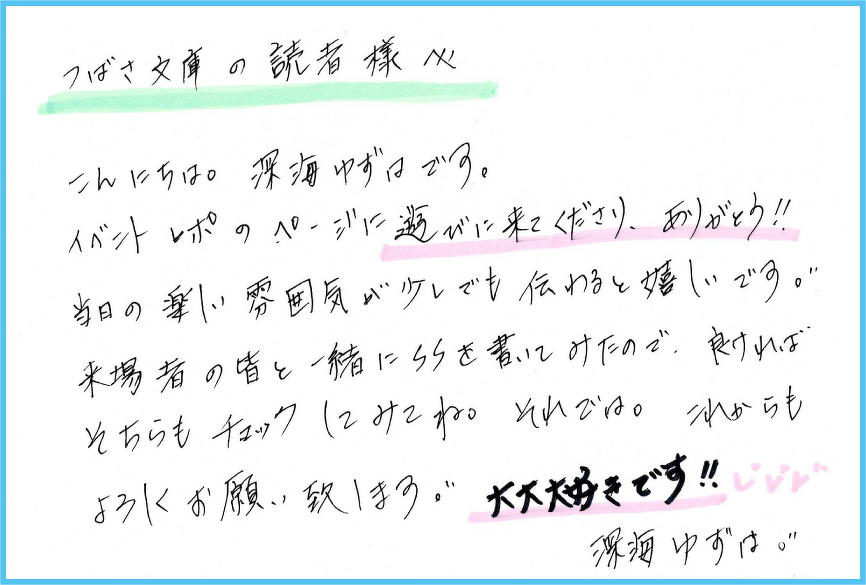 つばさ文庫の読者様へ
こんにちは。深海ゆずはです。
イベントレポのページに遊びに来てくださり、ありがとう!!
当日の楽しい雰囲気が少しでも伝わると嬉しいです。
来場者の皆と一緒にSSを書いてみたので、良ければ
そちらもチェックしてみてね。それでは。これからも
よろしくお願い致します。大大大好きです!!
深海ゆずは。